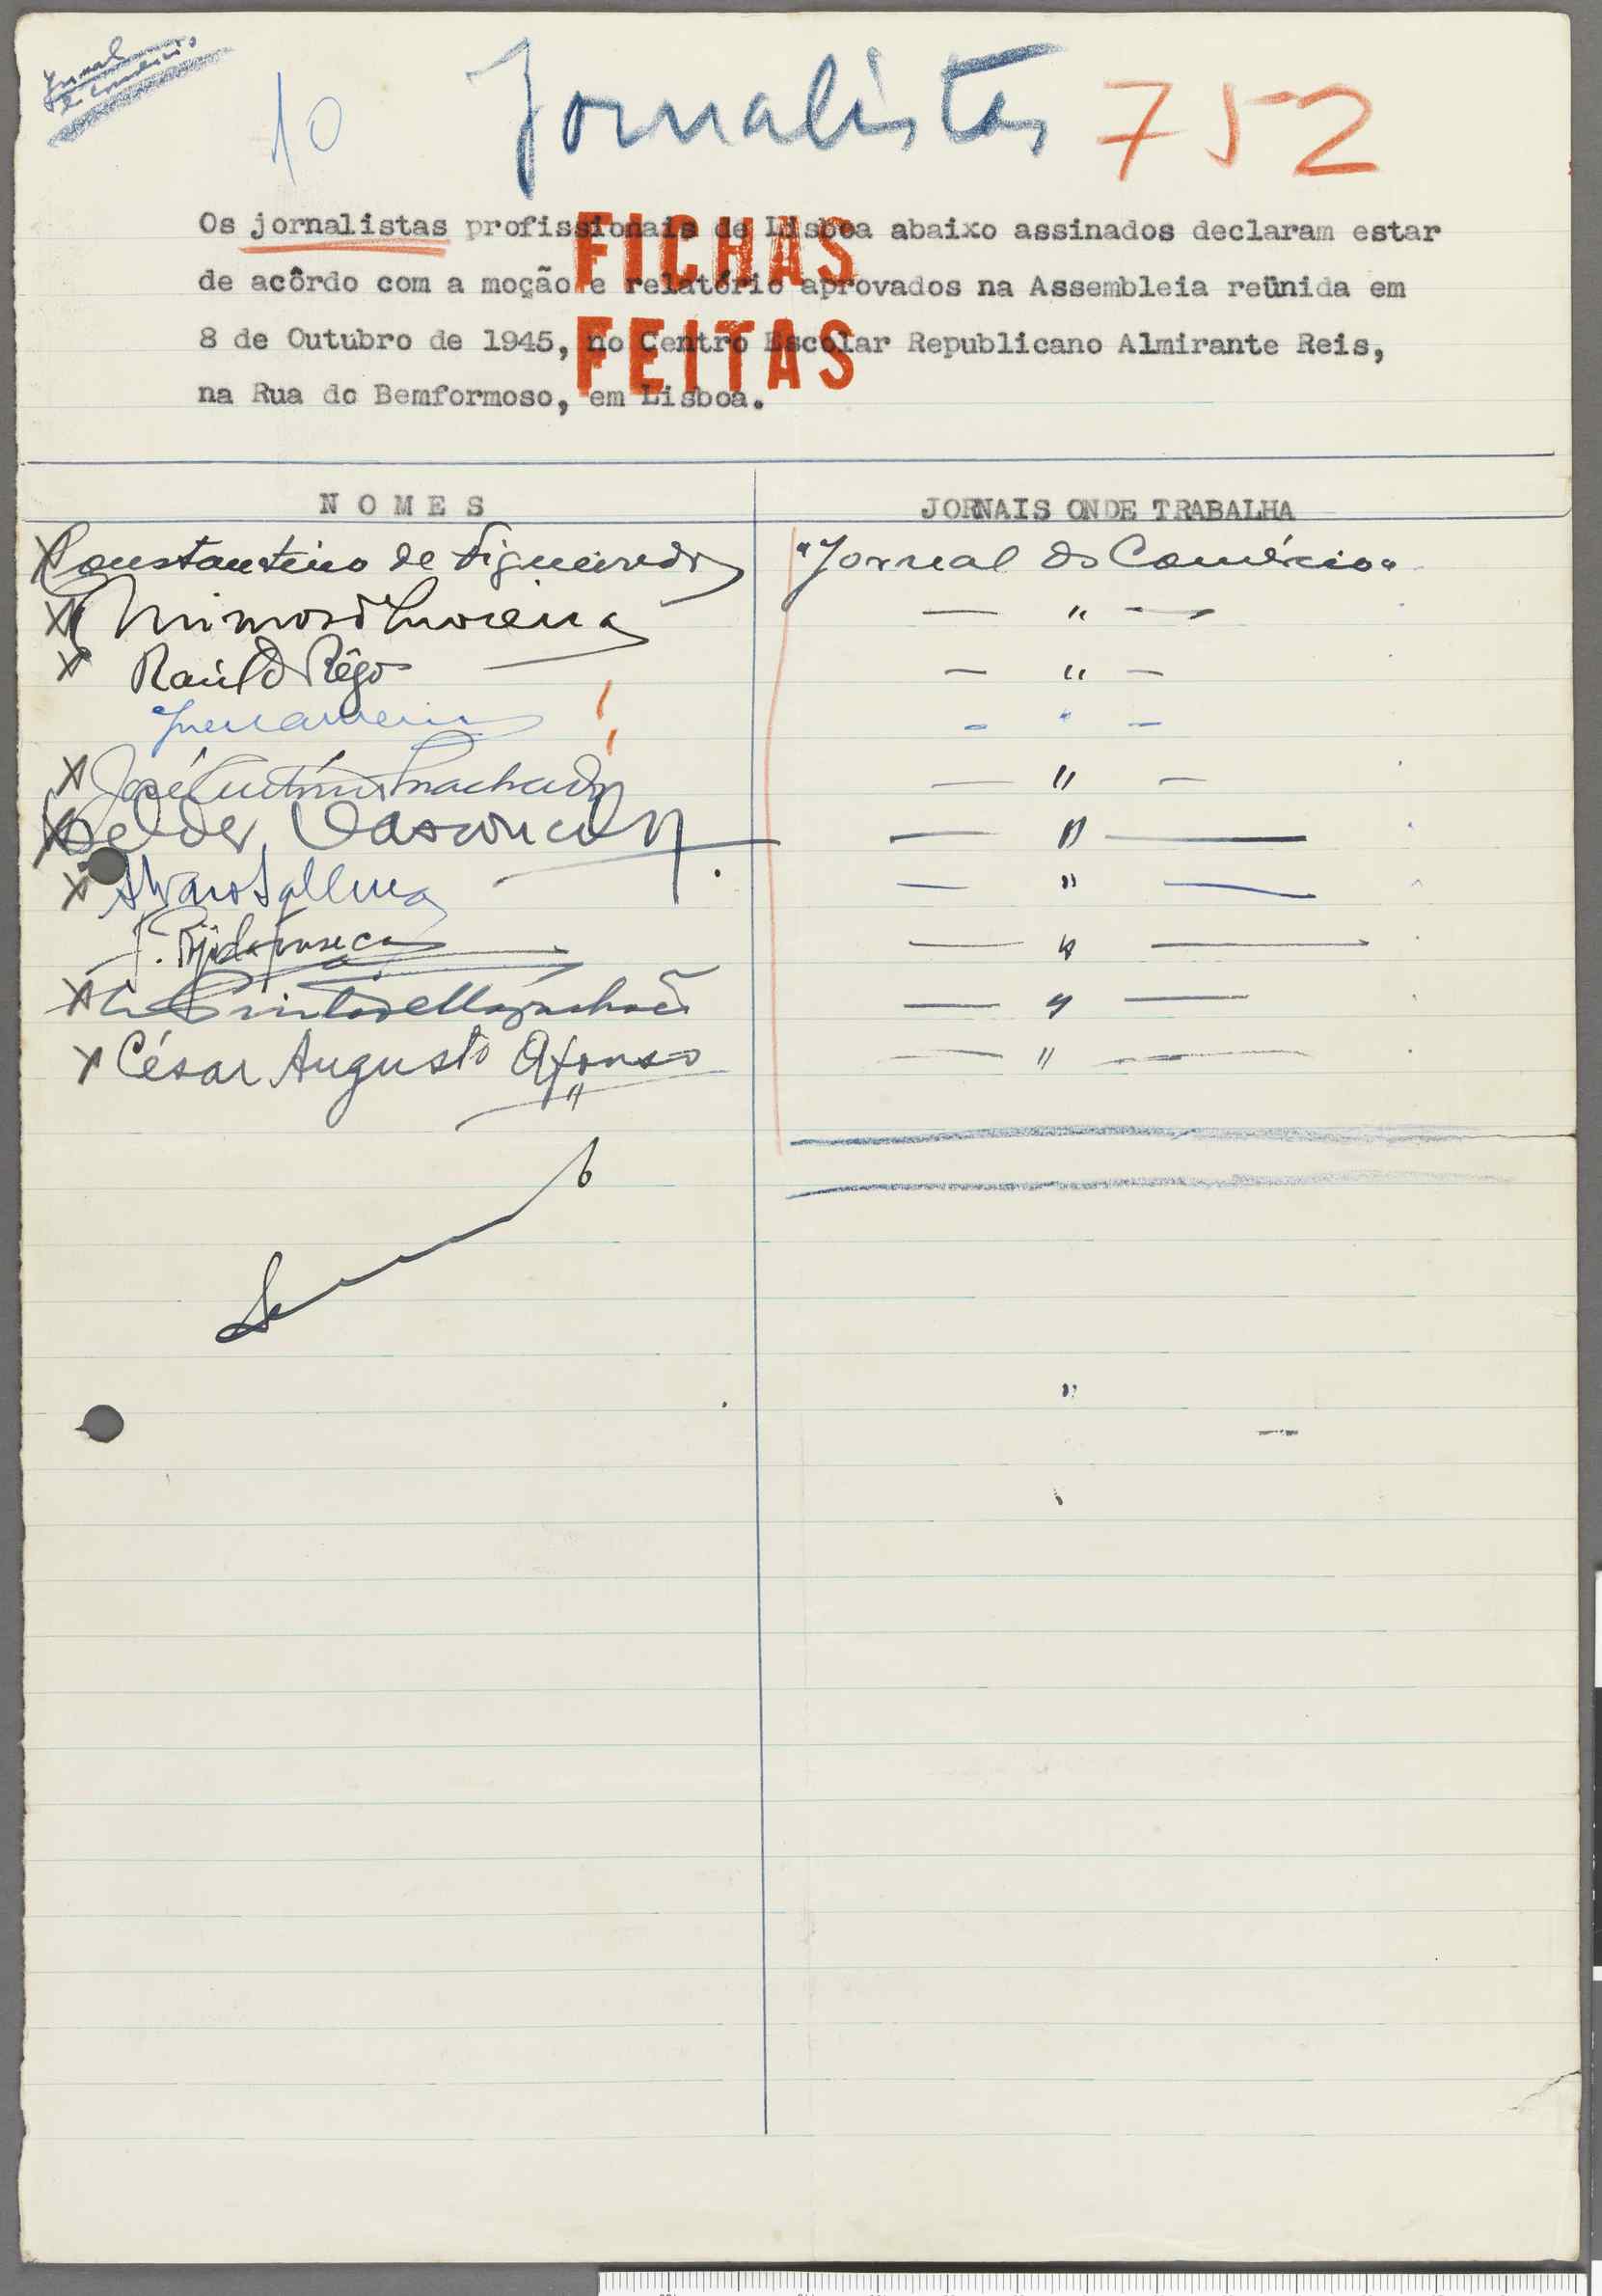 Jornal
do Comércio
10 Jornalistas 752
Os jornalistas profissionais de Lisboa abaixo assinados declaram estar
de acôrdo com a moção e relatório aprovados na Assembleia reünida em
8 de Outubro de 1945, no Centro Escolar Republicano Almirante Reis,
na Rua do Bemformoso, em Lisboa.
FICHAS
FEITAS
NOMES JORNAIS ONDE TRABALHA
X Constantino de Figueiredo "Jornal do Comércio"
X Mimoso Moreira — " —
X Raúl Rêgo — " —
- " -
X José Machado — " —
X Helder Vasconcelos — " —
X Alvaro — " —
Fonseca — " —
X Pinto de Magalhães — " —
X César Augusto Afonso — " —
"